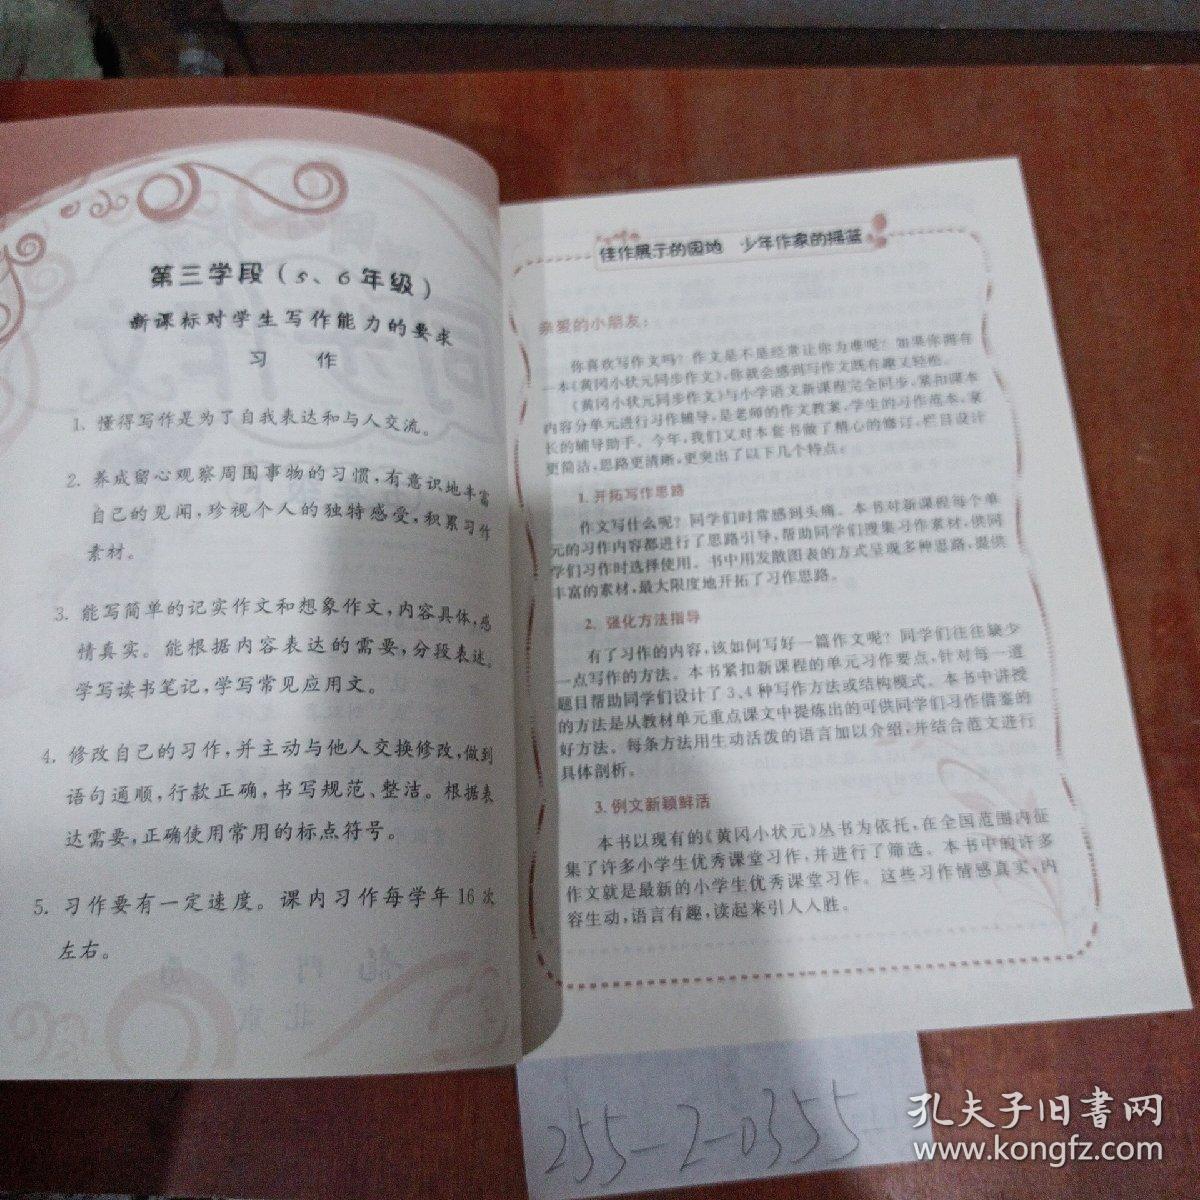 第三学段(5、6年级)
新课标对学生写作能力的要求
习 作
1. 懂得写作是为了自我表达和与人交流。
2. 养成留心观察周围事物的习惯,有意识地丰富
自己的见闻,珍视个人的独特感受,积累习作
素材。
3. 能写简单的记实作文和想象作文,内容具体,感
情真实。能根据内容表达的需要,分段表达。
学写读书笔记,学写常见应用文。
4. 修改自己的习作,并主动与他人交换修改,做到
语句通顺,行款正确,书写规范、整洁。根据表
达需要,正确使用常用的标点符号。
5. 习作要有一定速度。课内习作每学年16次
左右。
佳作展示的园地 少年作家的摇篮
亲爱的小朋友:
你喜欢写作文吗?作文是不是经常让你为难呢?如果你拥有
一本《黄冈小状元同步作文》,你就会感到写作文既有趣又轻松。
《黄冈小状元同步作文》与小学语文新课程完全同步,紧扣课本
内容分单元进行习作辅导,是老师的作文教案,学生的习作范本,家
长的辅导助手。今年,我们又对本套书做了精心的修订,栏目设计
更简洁,思路更清晰,更突出了以下几个特点:
1. 开拓写作思路
作文写什么呢?同学们时常感到头痛。本书对新课程每个单
元的习作内容都进行了思路引导,帮助同学们搜集习作素材,供同
学们习作时选择使用。书中用发散图表的方式呈现多种思路,提供
丰富的素材,最大限度地开拓了习作思路。
2. 强化方法指导
有了习作的内容,该如何写好一篇作文呢?同学们往往缺少
一点写作的方法。本书紧扣新课程的单元习作要点,针对每一道
题目帮助同学们设计了3、4种写作方法或结构模式。本书中讲授
的方法是从教材单元重点课文中提炼出的可供同学们习作借鉴的
好方法。每条方法用生动活泼的语言加以介绍,并结合范文进行
具体剖析。
3. 例文新颖鲜活
本书以现有的《黄冈小状元》丛书为依托,在全国范围内征
集了许多小学生优秀课堂习作,并进行了筛选。本书中的许多
作文就是最新的小学生优秀课堂习作。这些习作情感真实,内
容生动,语言有趣,读起来引人入胜。
255-2-0355
孔夫子旧书网
www.kongfz.com